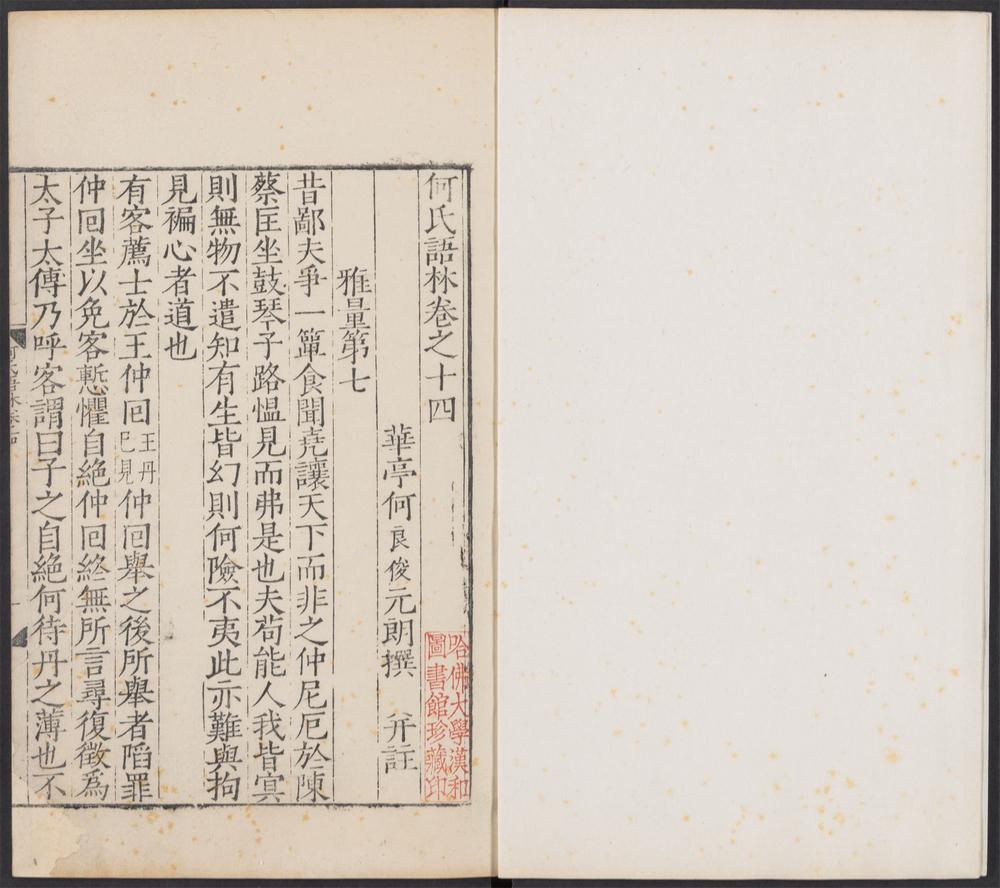 何氏語林卷之十四
華亭何良俊元朗撰 并註
雅量第七
昔鄙夫爭一簞食聞堯讓天下而非之仲尼厄於陳
蔡匡坐鼓琴子路慍見而弗是也夫苟能人我皆寘
則無物不遣知有生皆幻則何險不夷此亦難與拘
見褊心者道也
有客薦士於王仲回王丹已見仲回舉之後所舉者陷罪
仲回坐以免客慙懼自絶仲回終無所言尋復徵爲
太子太傅乃呼客謂曰子之自絶何待丹之薄也不
哈佛大學漢和
圖書館珍藏印